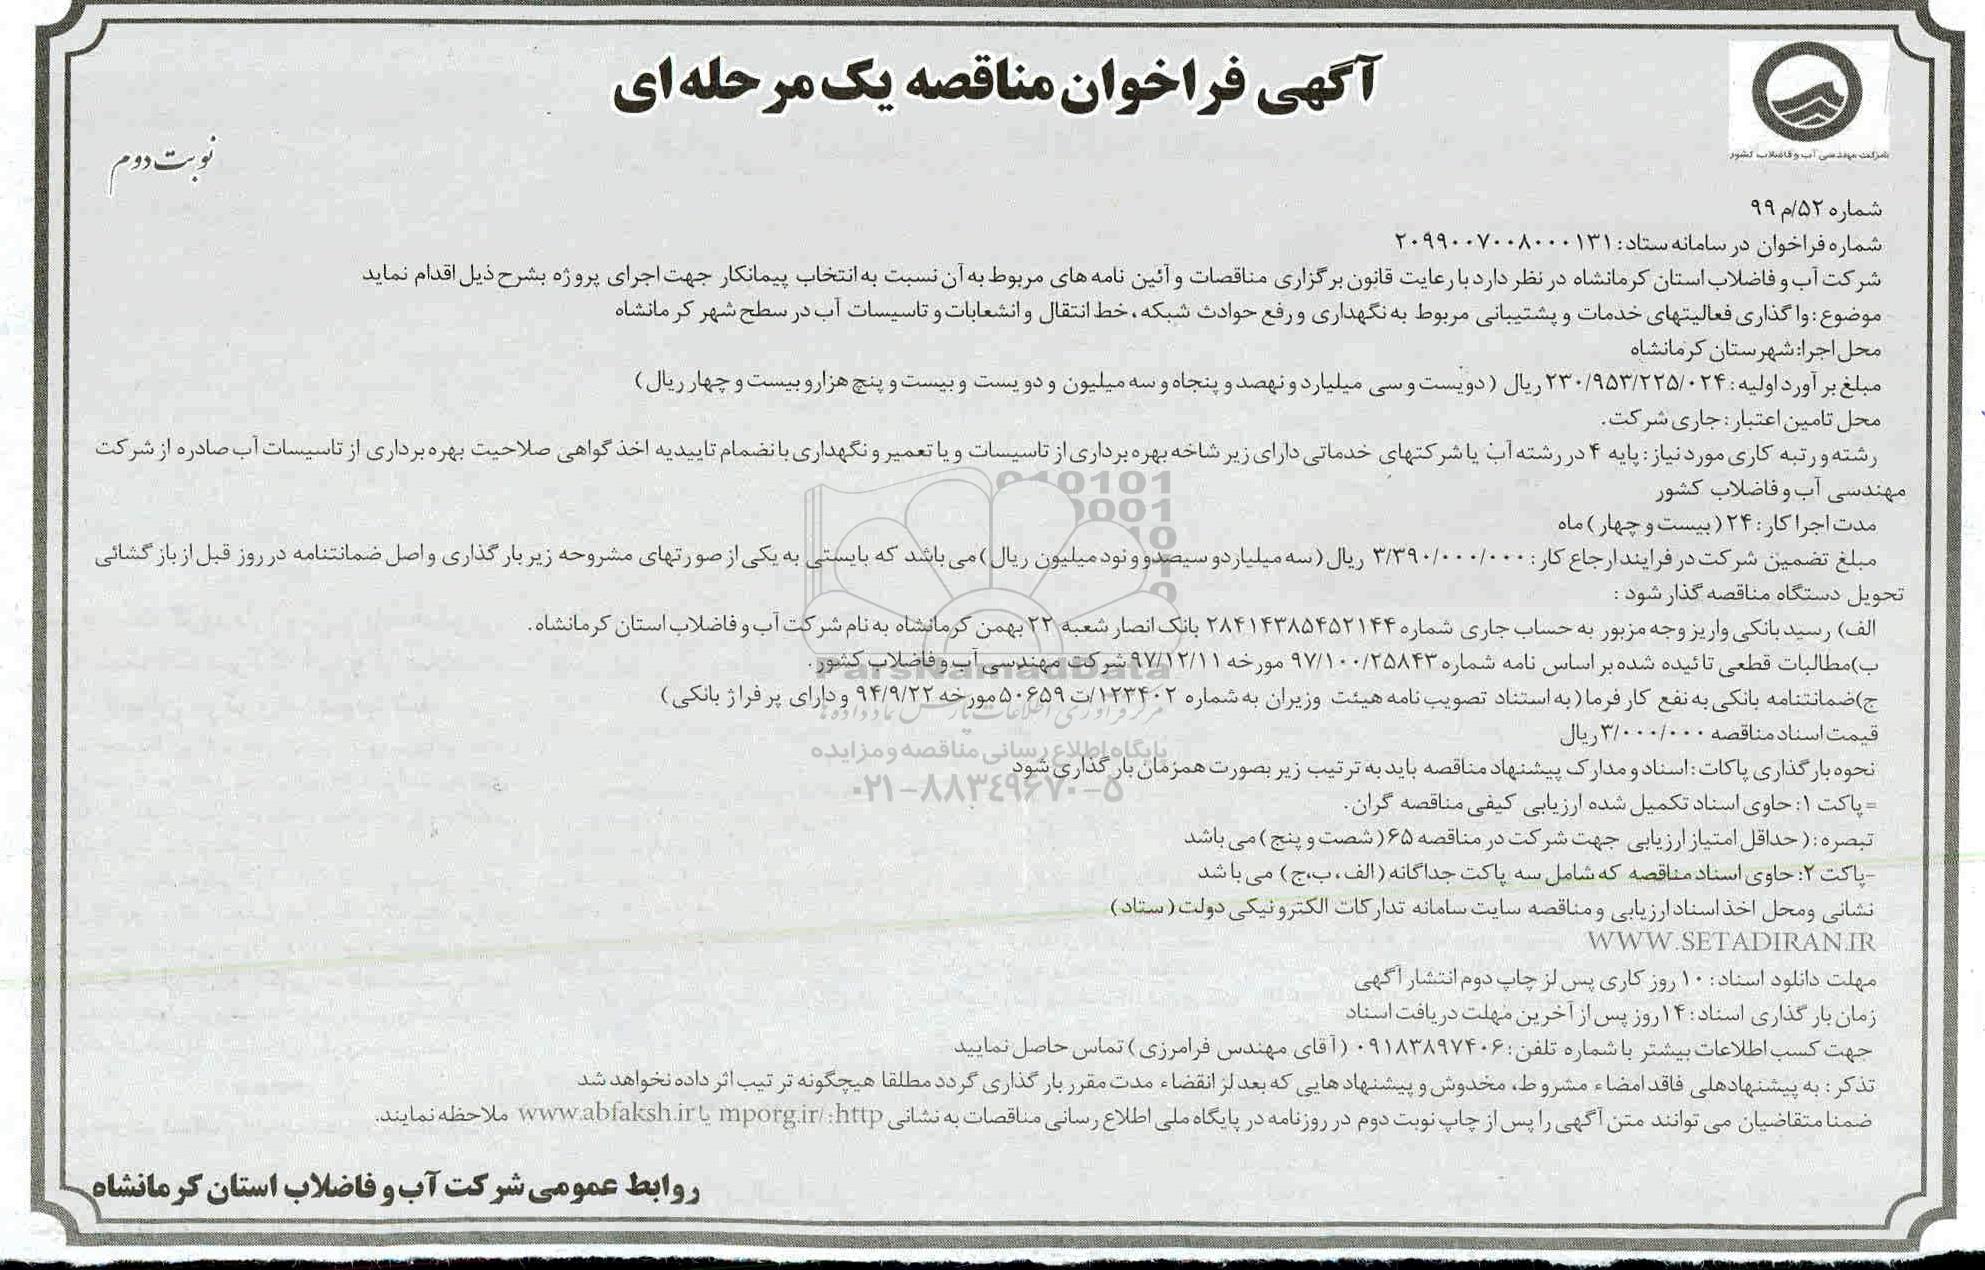 آگهی فراخوان مناقصه یک مرحله ای
شرکت مهندسی آب و فاضلاب کشور
نوبت دوم
شماره ۵۲/م ۹۹
شماره فراخوان در سامانه ستاد: ۲۰۹۹۰۰۷۰۰۸۰۰۰۱۳۱
شرکت آب و فاضلاب استان کرمانشاه در نظر دارد با رعایت قانون برگزاری مناقصات و آئین نامه های مربوط به آن نسبت به انتخاب پیمانکار جهت اجرای پروژه بشرح ذیل اقدام نماید
موضوع: واگذاری فعالیتهای خدمات و پشتیبانی مربوط به نگهداری و رفع حوادث شبکه، خط انتقال و انشعابات و تاسیسات آب در سطح شهر کرمانشاه
محل اجرا: شهرستان کرمانشاه
مبلغ برآورد اولیه: ۲۳۰/۹۵۳/۲۲۵/۰۲۴ ریال (دویست و سی میلیارد و نهصد و پنجاه و سه میلیون و دویست و بیست و پنج هزار و بیست و چهار ریال)
محل تامین اعتبار: جاری شرکت.
رشته و رتبه کاری مورد نیاز: پایه ۴ در رشته آب یا شرکتهای خدماتی دارای زیر شاخه بهره برداری از تاسیسات و یا تعمیر و نگهداری بانضمام تاییدیه اخذ گواهی صلاحیت بهره برداری از تاسیسات آب صادره از شرکت
مهندسی آب و فاضلاب کشور
مدت اجرا کار: ۲۴ (بیست و چهار) ماه
مبلغ تضمین شرکت در فرایند ارجاع کار: ۳/۳۹۰/۰۰۰/۰۰۰ ریال (سه میلیارد و سیصد و نود میلیون ریال) می باشد که بایستی به یکی از صورتهای مشروحه زیر بارگذاری و اصل ضمانتنامه در روز قبل از بازگشائی
تحویل دستگاه مناقصه گذار شود:
الف) رسید بانکی واریز وجه مزبور به حساب جاری شماره ۲۸۴۱۴۳۸۵۴۵۲۱۴۴ بانک انصار شعبه ۲۲ بهمن کرمانشاه به نام شرکت آب و فاضلاب استان کرمانشاه.
ب) مطالبات قطعی تائیده شده بر اساس نامه شماره ۹۷/۱۰۰/۲۵۸۴۳ مورخه ۹۷/۱۲/۱۱ شرکت مهندسی آب و فاضلاب کشور.
ج) ضمانتنامه بانکی به نفع کارفرما (به استناد تصویب نامه هیئت وزیران به شماره ۱۲۳۴۰۲/ت ۵۰۶۵۹ مورخه ۹۴/۹/۲۲ و دارای پرفراژ بانکی)
قیمت اسناد مناقصه ۳/۰۰۰/۰۰۰ ریال
نحوه بارگذاری پاکات: اسناد و مدارک پیشنهاد مناقصه باید به ترتیب زیر بصورت همزمان بارگذاری شود
= پاکت ۱: حاوی اسناد تکمیل شده ارزیابی کیفی مناقصه گران.
تبصره: (حداقل امتیاز ارزیابی جهت شرکت در مناقصه ۶۵ (شصت و پنج) می باشد
-پاکت ۲: حاوی اسناد مناقصه که شامل سه پاکت جداگانه (الف، ب، ج) می باشد
نشانی ومحل اخذ اسناد ارزیابی و مناقصه سایت سامانه تدارکات الکترونیکی دولت (ستاد)
WWW.SETADIRAN.IR
مهلت دانلود اسناد: ۱۰ روز کاری پس لز چاپ دوم انتشار آگهی
زمان بارگذاری اسناد: ۱۴ روز پس از آخرین مهلت دریافت اسناد
جهت کسب اطلاعات بیشتر با شماره تلفن: ۰۹۱۸۳۸۹۷۴۰۶ (آقای مهندس فرامرزی) تماس حاصل نمایید
تذکر: به پیشنهادهلی فاقد امضاء مشروط، مخدوش و پیشنهادهایی که بعد لز انقضاء مدت مقرر بارگذاری گردد مطلقا هیچگونه ترتیب اثر داده نخواهد شد
ضمنا متقاضیان می توانند متن آگهی را پس از چاپ نوبت دوم در روزنامه در پایگاه ملی اطلاع رسانی مناقصات به نشانی http:/mporg.ir یا www.abfaksh.ir ملاحظه نمایند.
روابط عمومی شرکت آب و فاضلاب استان کرمانشاه
ParsNamadData
مرکز فرآوری اطلاعات پارس نماد داده ها
پایگاه اطلاع رسانی مناقصه و مزایده
۰۲۱-۸۸۳۴۹۶۷۰-۵